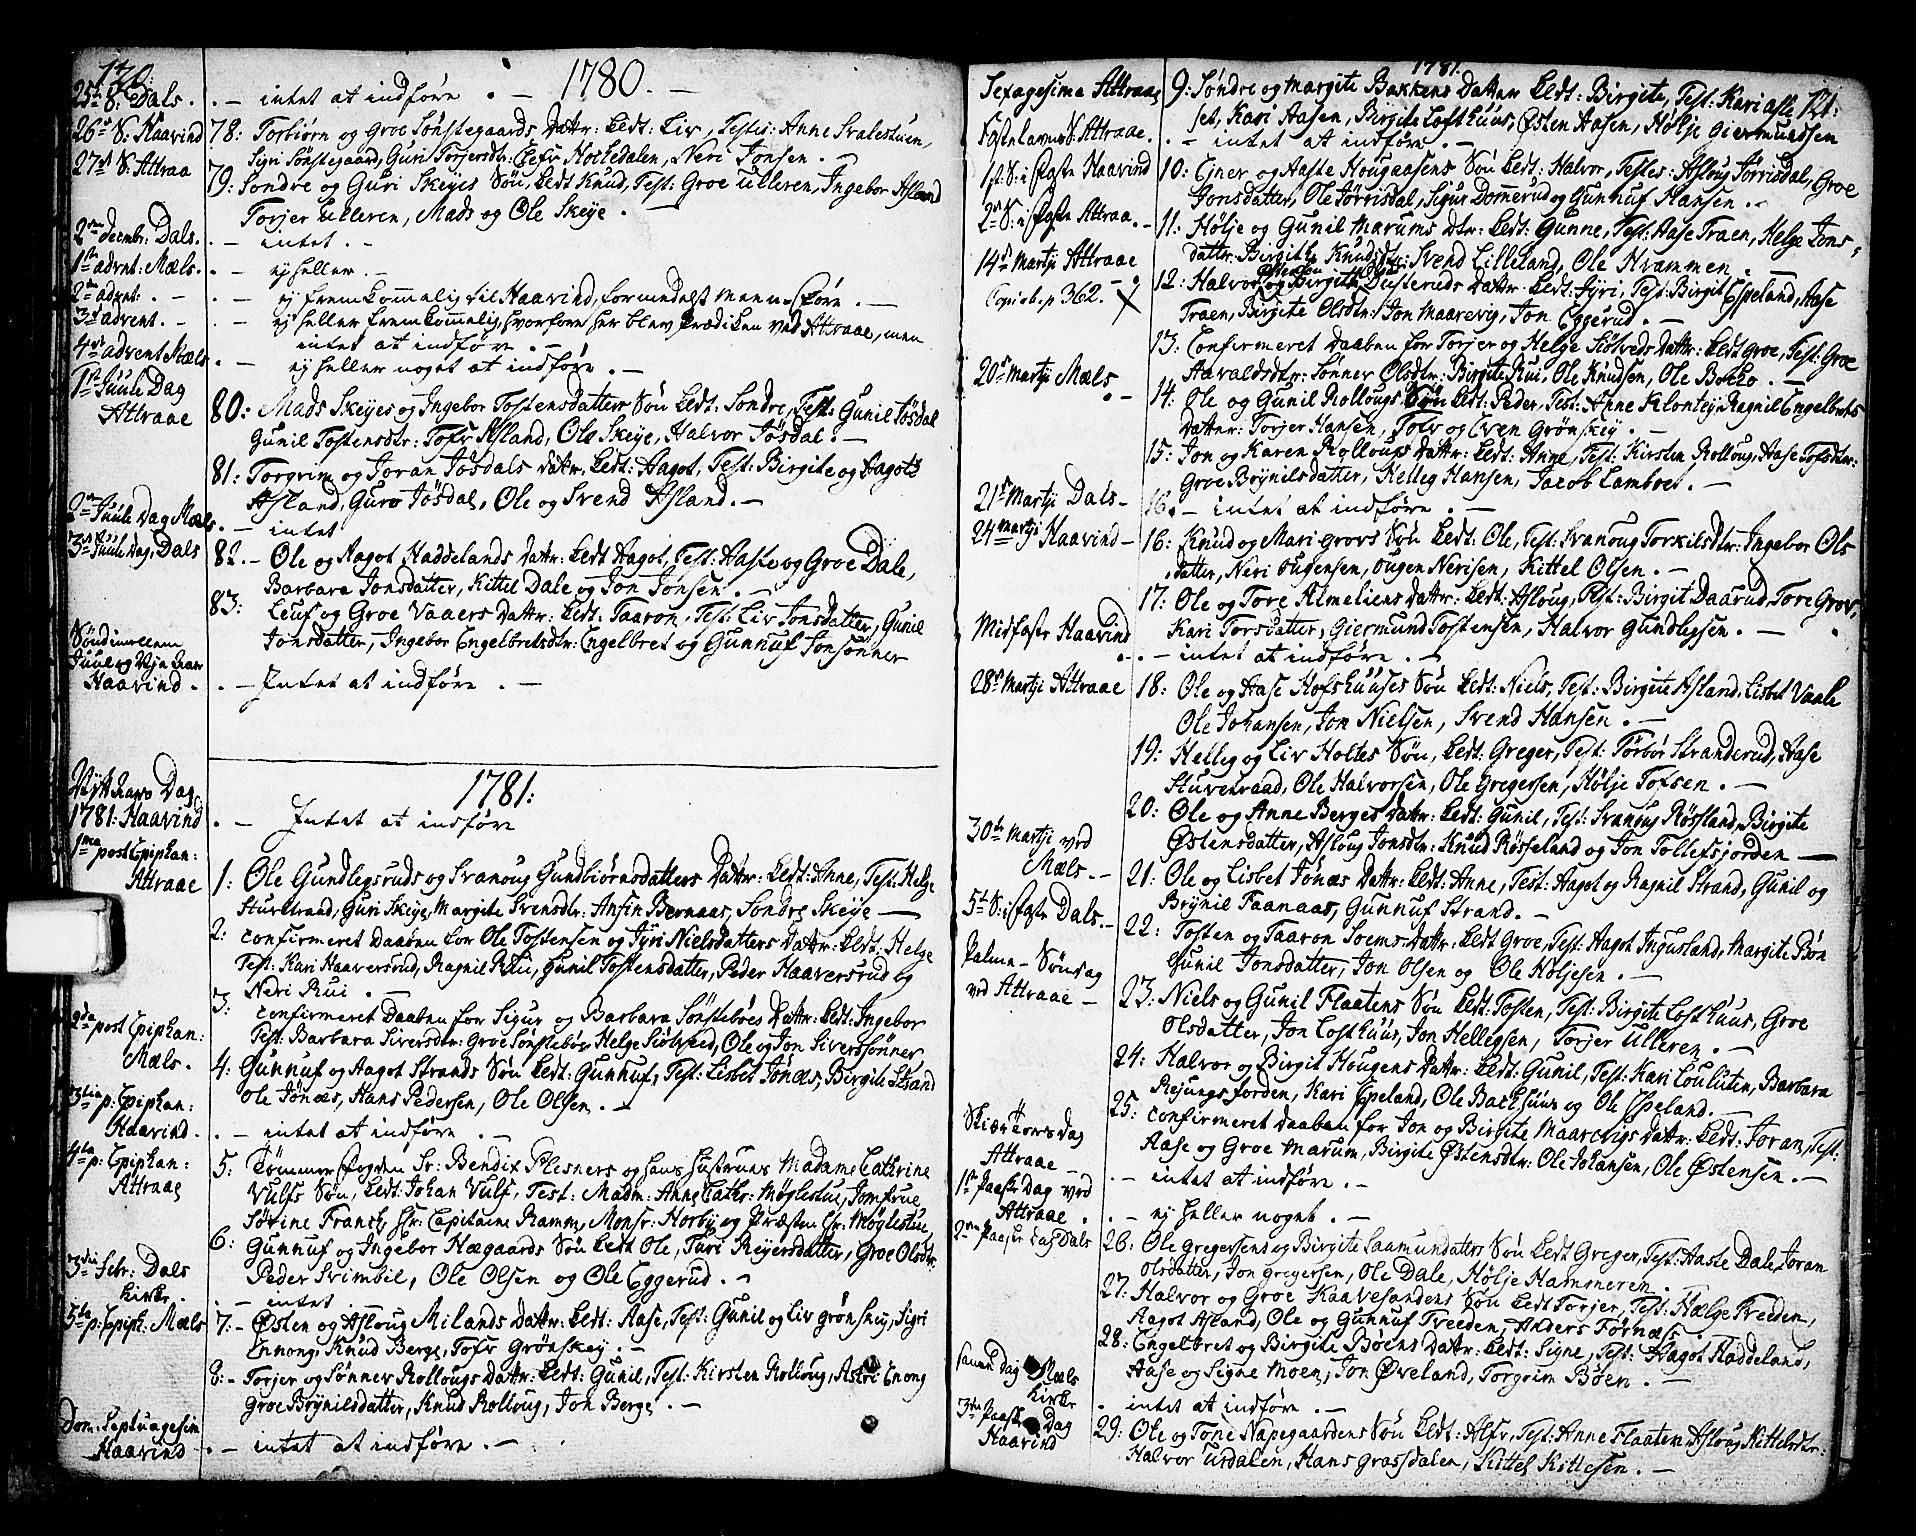 120.
1780. —
25de S: Dals. . — intet at indføre . —
26de S. Haavind 78: Torbiørn og Groe Sønstegaards Dattr: Ledt: Liv, Testis: Anne Svalestuen,
Syri Sønstegaard, Guri Torjersdtr: Tofv Holledalen, Neri Jonsen. —
27de S: Attraa 79: Sondre og Guri Skeyes Søn, Ledt Knud, Test: Groe Ulleren, Ingebor Asland
Torjer Ulleren, Mads og Ole Skeye .
2den Decembr: Dals. . — intet. —
1ste Advent: Mæls. . — ej heller. —
2den advt: . — . — ej fremkommelig til Haavind, formedelst Menn-føre . —
3de advent. — . — ej heller fremkommelig, hvorfore her blev Prædiken ved Attraae, men
intet at indføre . —
4de advent Mæls . — ej heller noget at indføre . —
1ste Juule Dag
Attraae 80: Mads Skeyes og Ingebor Tostensdatters Søn Ledt: Sondre, Test: Gunil Jøsdal
Gunil Tostensdtr: Tofv Asland, Ole Skeye, Halvor Jøsdal. —
81: Torgrim og Joran Jøsdals Dattr: Ledt: Aagot, Test: Birgite og Aagot
Asland, Guro Jøsdal, Ole og Svend Asland. —
2den Juule Dag Mæls. . — intet
3de Juule Dag, Dals 82. — Ole og Aagot Haddelands Dattr: Ledt Aagot, Test: Aaste og Groe Dale,
Barbara Jonsdatter, Kittil Dale og Jon Jonsen. —
83: Leuf og Groe Vaaers Dattr: Ledt: Taaron, Test: Liv Jonsdatter, Gunil
Jonsdatter, Ingebor Engelbretsdtr: Engelbret og Gunnuf Jonsønner
Sønd: imellem
Juul og Nyt Aar
Haavind. . — Intet at indføre . —
1781:
Nyt Aars Dag
1781: Haavind . — Intet at indføre
1ma post Epiphan:
Attraae 1: Ole Gundlegsruds og Svanoug Gundbiørnsdatters Dattr: Ledt: Anne, Test: Helge
Sturestraad, Guri Skeye, Margite Svensdtr: Ansin Bernaas, Sondre Skeye —
2: Confirmeret Daaben for Ole Tostensen og Jyri Nielsdatters Dattr: Ledt: Helge
Test: Kari Haaversrud, Ragnil Rui, Gunil Tostensdatter, Peder Haaversrud og
Neri Rui . —
2da post Epiphan:
Mæls. 3: Confirmeret Daaben for Sigur og Barbara Sønstebøes Dattr: Ledt: Ingebor
Test: Barbara Siversdtr: Groe Sønstebøe, Helge Siøtved, Ole og Jon Siverssønner
4: Gunnuf og Aagot Strands Søn Ledt: Gunnuf, Test: Lisbet Jønæs, Birgite Strand
Ole Jønæs, Hans Pedersen, Ole Olsen. —
3tia p: Epiphan:
Haavind. . — intet at indføre . —
4ta p: Epiphan:
Attraae 5: Tømmer Fogden Sr: Bendix Plesners og hans Hustrues Madame Cathrine
Vulfs Søn, Ledt: Johan Vulf, Test: Madm: Anne Cathr: Møglestue, Jomfrue
Sørine Franck, Hr: Capitaine Ramm, Monsr: Horby og Præsten Hr: Møglestue
6: Gunnuf og Ingebor Hægaards Søn Ledt Ole, Turi Reyersdatter, Groe Olsdtr:
Peder Svimbil, Ole Olsen og Ole Eggerud. —
3die Febr: Dals
Kirke. . — intet
5ta p: Epiph: Mæls 7: — Østen og Asloug Milands Dattr: Ledt: Aase, Test: Gunil og Liv Grønskey, Sigri
Ennong, Knud Berge, Tofv Grønskey. —
8: — Torjer og Sønner Rollougs Dattr: Ledt: Gunil, Test: Kirsten Rolloug, Astri Enong
Groe Brynilsdatter, Knud Rolloug, Jon Berge . —
Dom: Septuagesim
Haavind — . — intet at indføre . —
1781. 121.
Sexagesima Attraae 9: Søndre og Margite Bakkens Datter Ledt: Birgite, Test: Kari Asle
set, Kari Aasen, Birgite Lofthuus, Østen Aasen, Hølje Giermundsen
Fastelavns S. Attraae. . — intet at indføre . —
1ste S: i Faste Haavind 10: Ejner og Aaste Hougaasens Søn Ledt: Halvor, Testes: Asloug Jørrisdal, Groe
Jonsdatter, Ole Jørrisdal, Sigur Domerud og Gunnuf Hansen. —
2den S: i Faste Attraa. — 11: Hølje og Gunil Marums Dtr: Ledt: Gunne, Test: Aase Traen, Helge Jons
datter, Birgitte Knudsdtr: Svend Lilleland, Ole Hvammen .
14de Martji Attraae
Copieb. p. 362. X 12: Halvor og Birgitte Dusteruds Dattr Ledt: Jyri, Test: Birgit Espeland, Aase
Traen, Birgite Olsdtr: Jon Maarevig, Jon Eggerud. —
13: Confirmeret Daaben for Torjer og Helge Siøtveds Dattr: Ledt Groe, Test: Groe
Aavaldsdtr: Sønner Olsdtr: Birgite Rui, Ole Knudsen, Ole Bocko. —
20de Martji Mæls . — 14: Ole og Gunil Rollougs Søn Ledt: Peder, Test: Anne Klonteji Ragnil Engelbrets
Datter: Torjer Hansen, Tolv og Even Grønskey . —
15: Jon og Karen Rollougs Dattr: Ledt: Anne, Test: Kirsten Rolloug, Aase Tofsdtr:
Groe Brynilsdatter, Helleg Hansen, Jacob Lambret. —
21de Martji Dals — 16. — intet at indføre . —
24de Martji Haavind — 16: Knud og Mari Grovs Søn Ledt: Ole, Test: Svanoug Torkilsdtr: Ingebor Ols
datter, Neri Ougensen, Ougen Nerisen, Kittel Olsen . —
17: Ole og Tore Almeliens Dattr: Ledt: Asloug, Test: Birgit Daarud, Tore Grov,
Kari Torsdatter, Giermund Tostensen, Halvor Gundlegsen . —
Midfaste Haavind . — intet at indføre . —
28de Martji Attraae 18: Ole og Aase Hofshuuses Søn Ledt: Niels, Test: Birgite Asland, Lisbet Vaale
Ole Johansen, Jon Nielsen, Svend Hansen . —
19: Helleg og Liv Holtes Søn, Ledt: Greger, Test: Torbor Stranderud, Aase
Stuvetraad, Ole Halvorsen, Ole Gregersen, Hølje Tofsen. —
20: Ole og Anne Berges Dattr: Ledt: Gunil, Test: Svanoug Røssland, Birgite
Østensdatter, Asloug Jonsdtr: Knud Røsseland og Jon Tollefsjorden —
30te Martji ved
Mæls. — 21: Ole og Lisbet Jønæs Dattr: Ledt: Anne, Test: Aagot og Ragnil Strand, Gunil og
Brynil Taanaas, Gunnuf Strand. —
5te S: i Faste Dals. — 22: Tosten og Taaron Soems Dattr: Ledt Groe, Test: Aagot Ingusland, Margite Bøn
Gunil Jonsdatter, Jon Olsen og Ole Holjesen . —
Palme-Søndag
ved Attraae — 23: Niels og Gunil Flaatens Søn Ledt: Tosten, Test: Birgite Lofthuus, Groe
Olsdatter, Jon Lofthuus, Jon Hellegsen, Torjer Ulleren . —
24: Halvor og Birgit Hougens Dattr: Ledt: Gunil, Test: Kari Louluten, Barbara
Rejungsjorden, Kari Espeland, Ole Bakhuus og Ole Espeland. —
25: Confirmeret Daaben for Jon og Birgite Maarevigs Dattr: Ledt: Joran, Test:
Aase og Groe Marum, Birgite Østensdtr: Ole Johansen, Ole Østensen . —
Skiærtorsdag
Attraae — . — intet at indføre . —
1ste Paaske Dag ved
Attraae . . — ej heller noget . —
2den Paaske Dag Dals 26: Ole Gregersens og Birgite Saamundatters Søn Ledt Greger, Test: Aaste Dale, Joran
Olsdatter, Jon Gregersen, Ole Dale, Hølje Hammeren .
27: Halvor og Groe Kaavesandens Søn Ledt Torjer, Test: Hælge Treeden,
Aagot Asland, Ole og Gunnuf Treeden, Anders Førnæss .
28: Engelbret og Birgite Bøens Dattr: Ledt: Signe, Test: Aagot Haddeland,
Aase og Signe Moen, Jon Øveland, Torgrim Bøen . —
samme Dag Mæls
Kirke . intet at indføre . —
3die Paaske Dag
Haavind 29: Ole og Tone Napegaardens Søn Ledt: Alfv, Test: Anne Flaaten, Asloug Kittelsdtr:
Halvor Turdalen, Hans Grassdalen, Kittel Kittesen. —